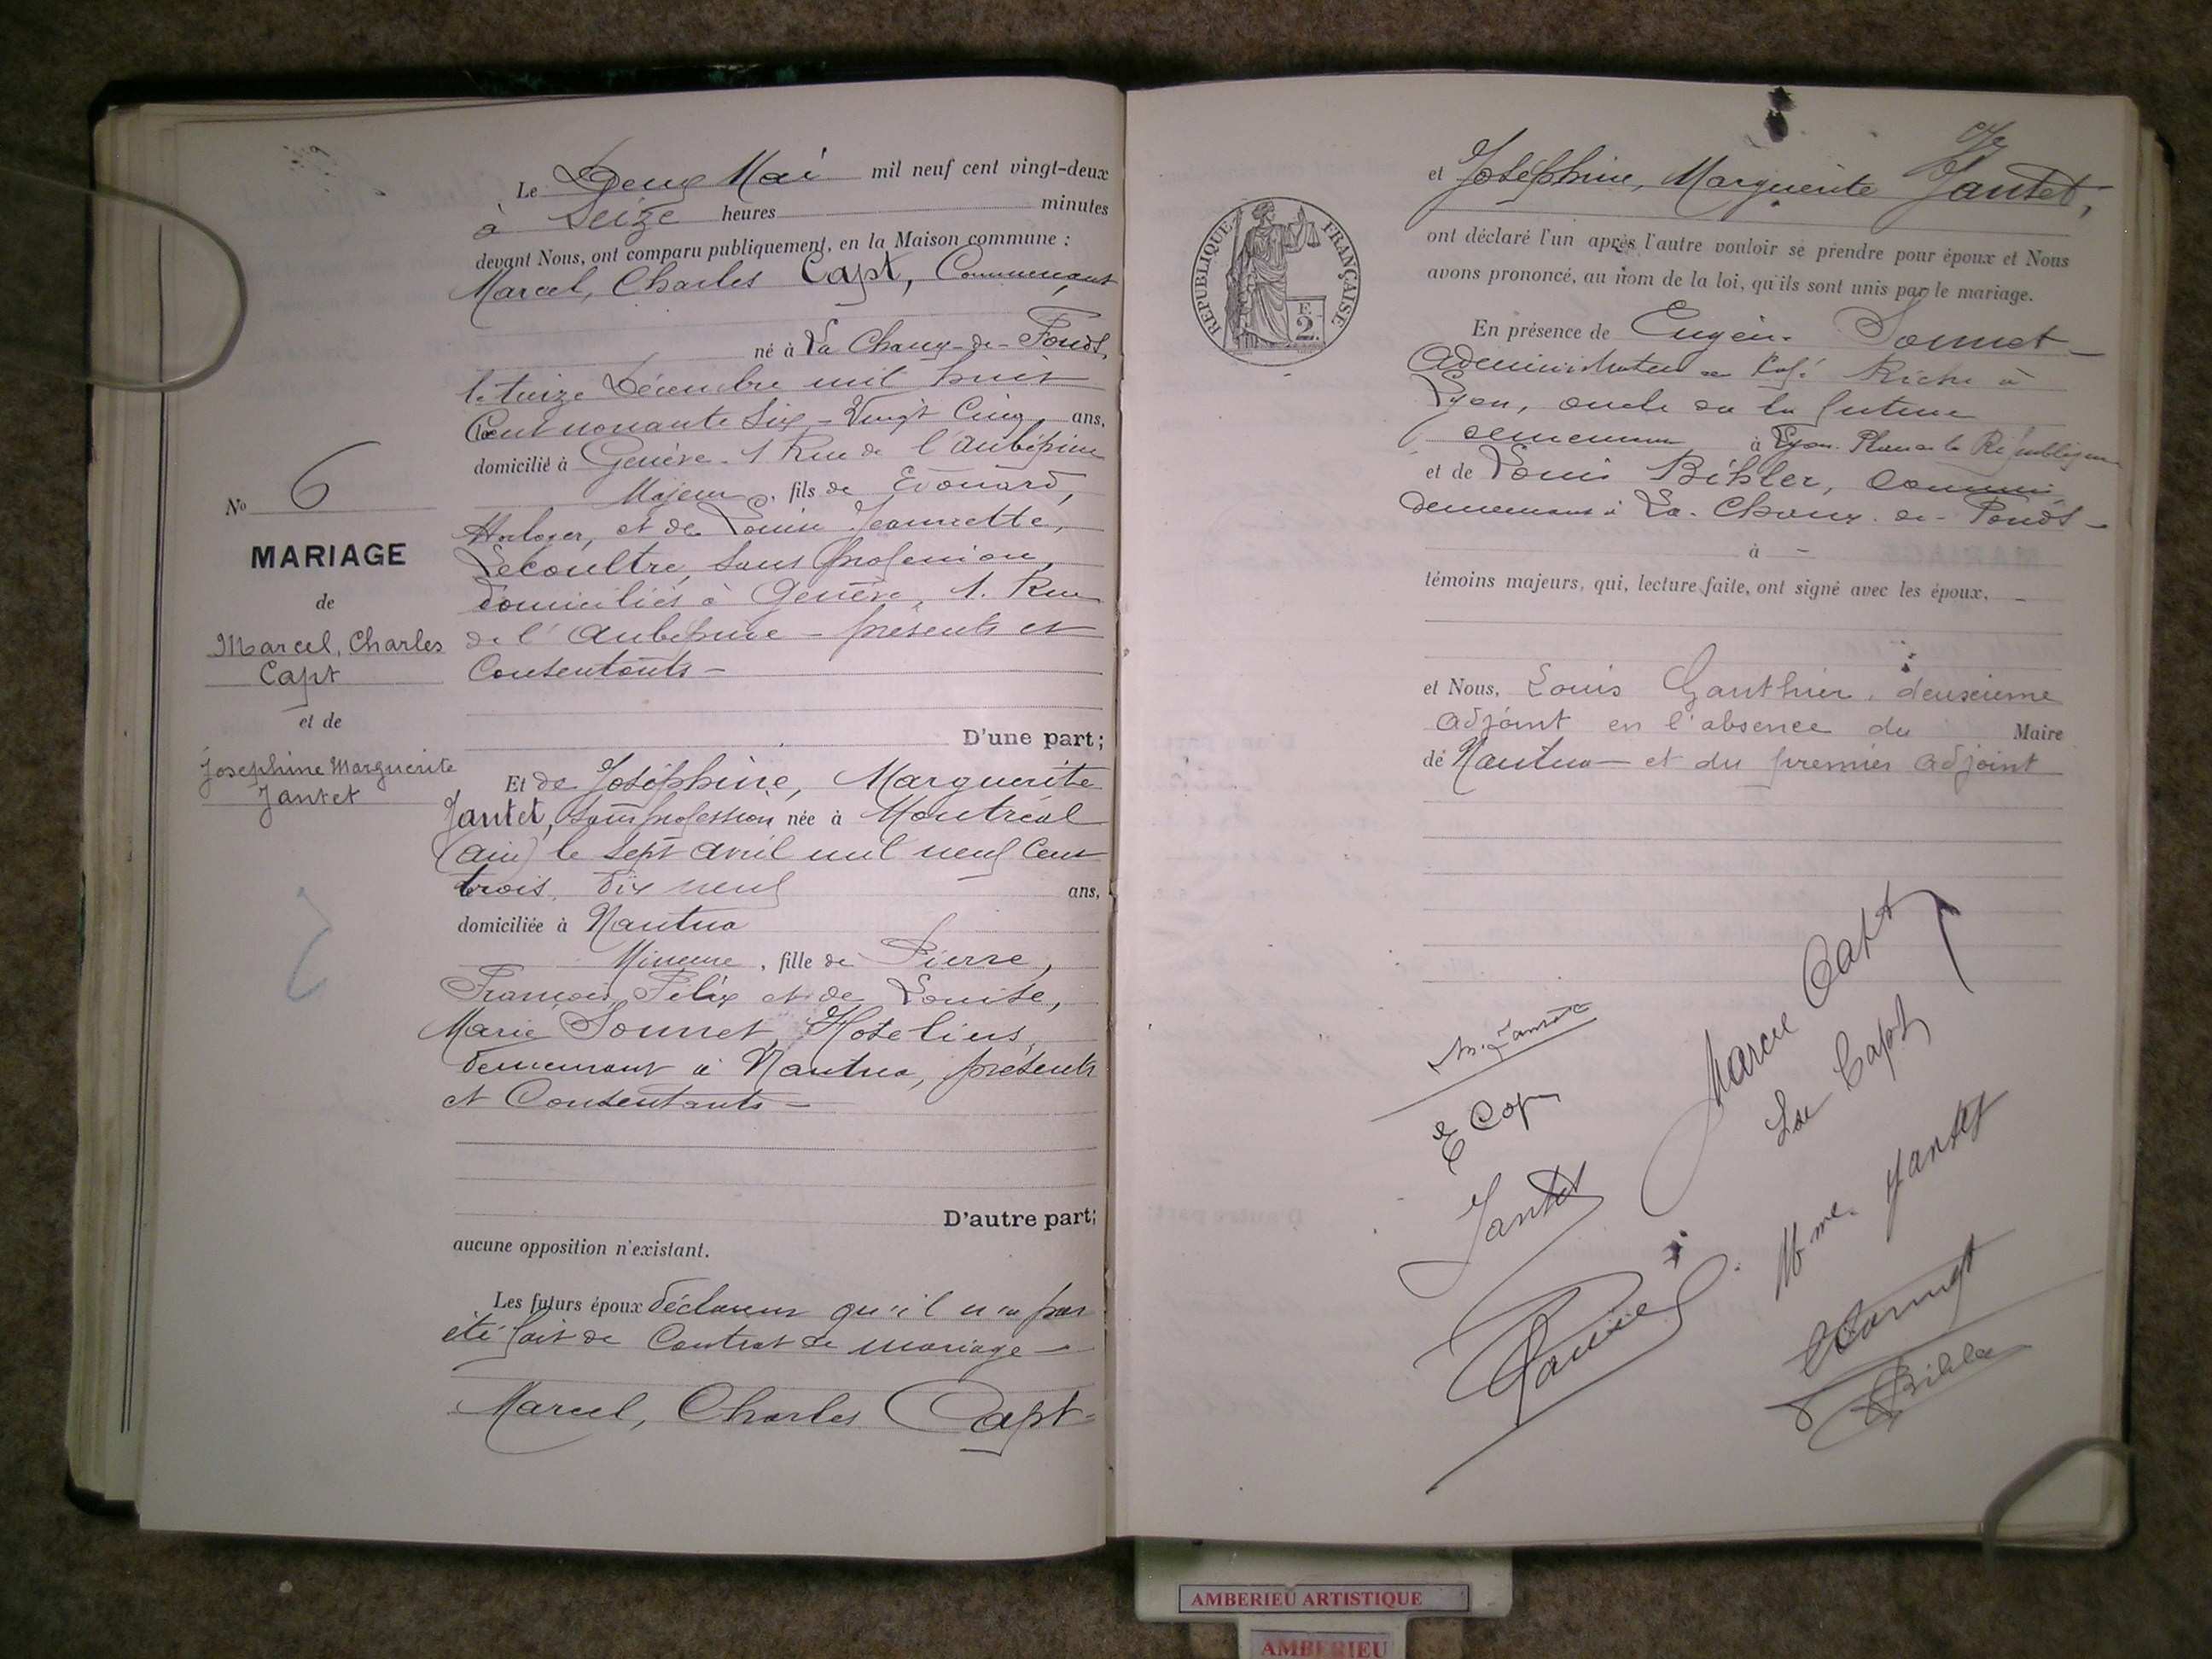 Le Deux Mai mil neuf cent vingt-deux
à Seize heures minutes
devant Nous, ont comparu publiquement, en la Maison commune :
Marcel, Charles Capt, Commerçant
né à La Chaux-de-Fonds,
le treize Décembre mil huit
Cent nonante Six - Vingt Cinq ans,
domicilié à Genève - 1 Rue de l'aubépine
Majeur, fils de Edouard,
Horloger, et de Louise Jeannette,
Lecoultre, sans profession,
domiciliés à Genève, 1. Rue
de l'Aubépine - présents et
Consentants -
D'une part;
No 6
MARIAGE
de
Marcel, Charles
Capt
et de
Josephine Marguerite
Jantet
Et de Joséphine, Marguerite
Jantet, sans profession née à Montréal
(ain) le sept avril mil neuf Cent
trois, dix neuf ans,
domiciliée à Nantua
Mineure, fille de Pierre,
François, Félix et de Louise,
Marie Sonnet, Hoteliers,
demeurant à Nantua, présents
et Consentants -
D'autre part;
aucune opposition n'existant.
Les futurs époux déclarent qu'il n'a pas
été fait de Contrat de mariage -
Marcel, Charles Capt -
et Joséphine, Marguerite Jantet,
REPUBLIQUE FRANÇAISE
F.
2.
ont déclaré l'un après l'autre vouloir se prendre pour époux et Nous
avons prononcé, au nom de la loi, qu'ils sont unis par le mariage.
En présence de Eugène Sonnet -
Administrateur Café Riche à
Lyon, oncle de la future
demeurant à Lyon. Place de la République
et de Louis Bihler,
demeurant à La-Chaux-de-Fonds -
à -
témoins majeurs, qui, lecture faite, ont signé avec les époux,
et Nous, Louis Gauthier, deuxieme
adjoint en l'absence du Maire
de Nantua et du premier adjoint
M. Jantet
Marcel Capt
E Capt
Capt
Jantet
Mme Jantet
Sonnet
Bihler
AMBERIEU ARTISTIQUE
AMBERIEU